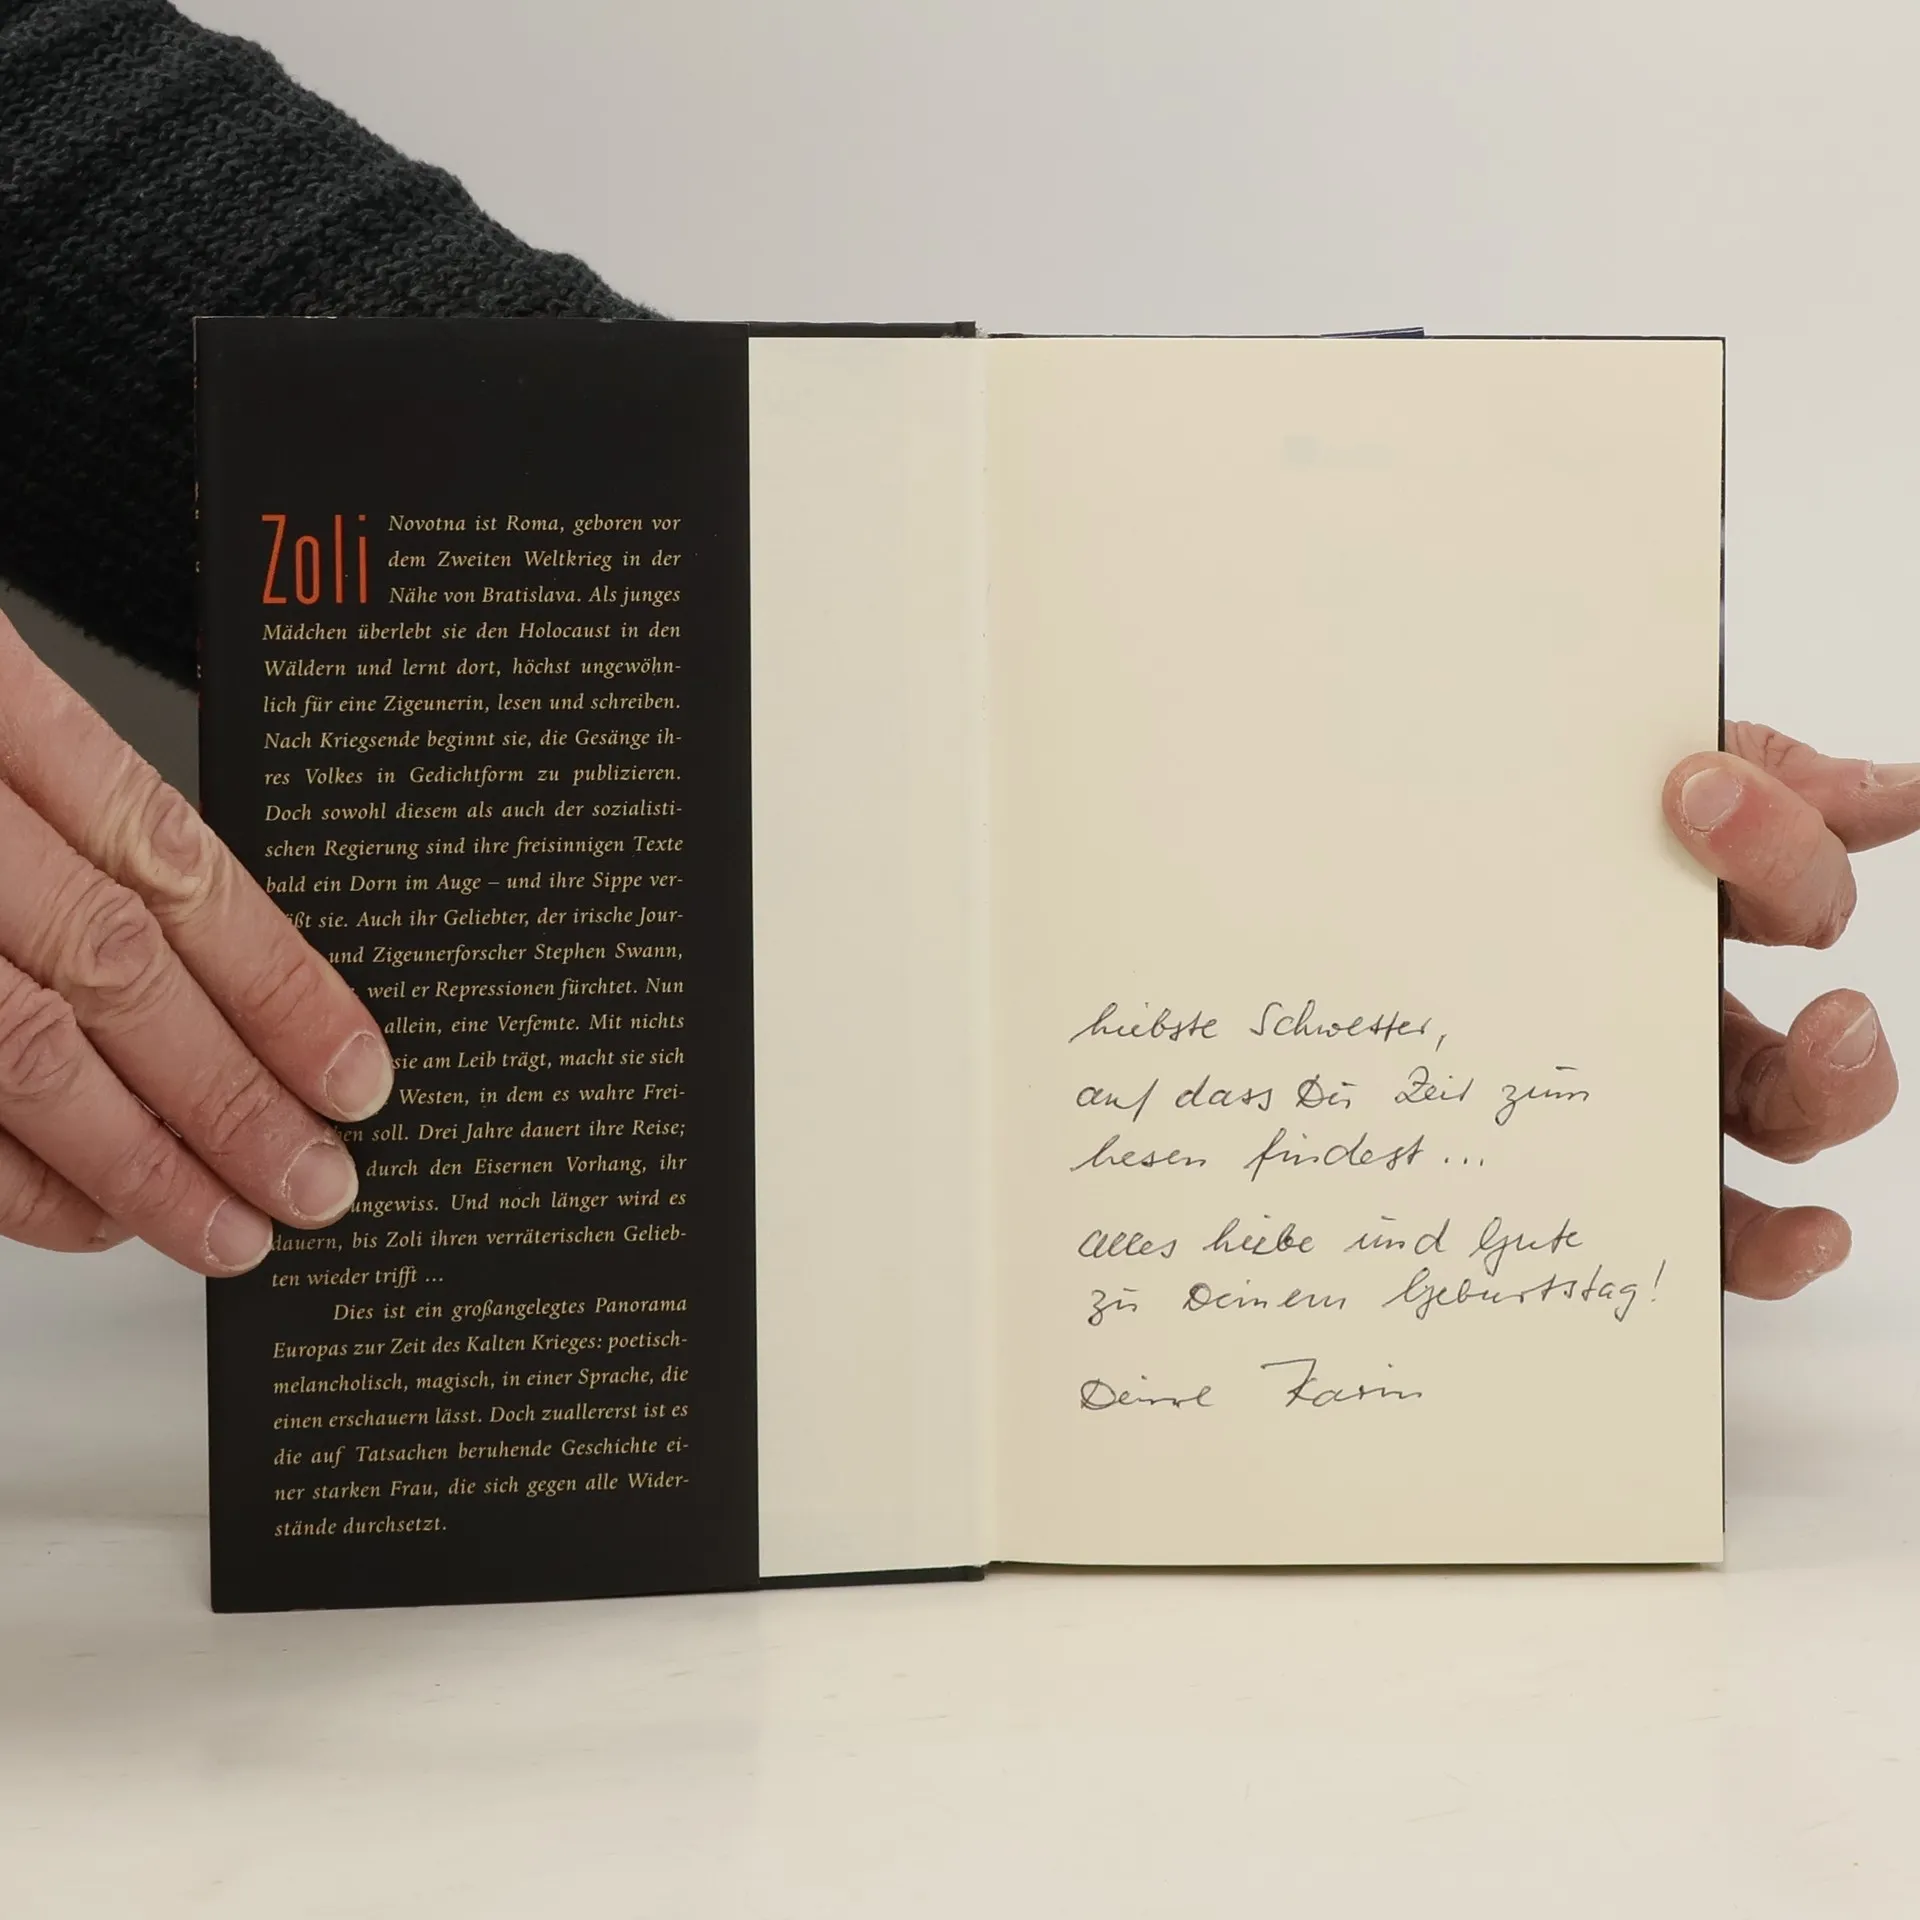 Zoli
Novotna ist Roma, geboren vor
dem Zweiten Weltkrieg in der
Nähe von Bratislava. Als junges
Mädchen überlebt sie den Holocaust in den
Wäldern und lernt dort, höchst ungewöhn-
lich für eine Zigeunerin, lesen und schreiben.
Nach Kriegsende beginnt sie, die Gesänge ih-
res Volkes in Gedichtform zu publizieren.
Doch sowohl diesem als auch der sozialisti-
schen Regierung sind ihre freisinnigen Texte
bald ein Dorn im Auge – und ihre Sippe ver-
sie. Auch ihr Geliebter, der irische Jour-
und Zigeunerforscher Stephen Swann,
weil er Repressionen fürchtet. Nun
allein, eine Verfemte. Mit nichts
sie am Leib trägt, macht sie sich
Westen, in dem es wahre Frei-
soll. Drei Jahre dauert ihre Reise;
durch den Eisernen Vorhang, ihr
ungewiss. Und noch länger wird es
dauern, bis Zoli ihren verräterischen Gelieb-
ten wieder trifft ...
Dies ist ein großangelegtes Panorama
Europas zur Zeit des Kalten Krieges: poetisch-
melancholisch, magisch, in einer Sprache, die
einen erschauern lässt. Doch zuallererst ist es
die auf Tatsachen beruhende Geschichte ei-
ner starken Frau, die sich gegen alle Wider-
stände durchsetzt.
Liebste Schwester,
auf dass Du Zeit zum
Lesen findest ...
Alles Liebe und Gute
zu Deinem Geburtstag!
Deine Karin